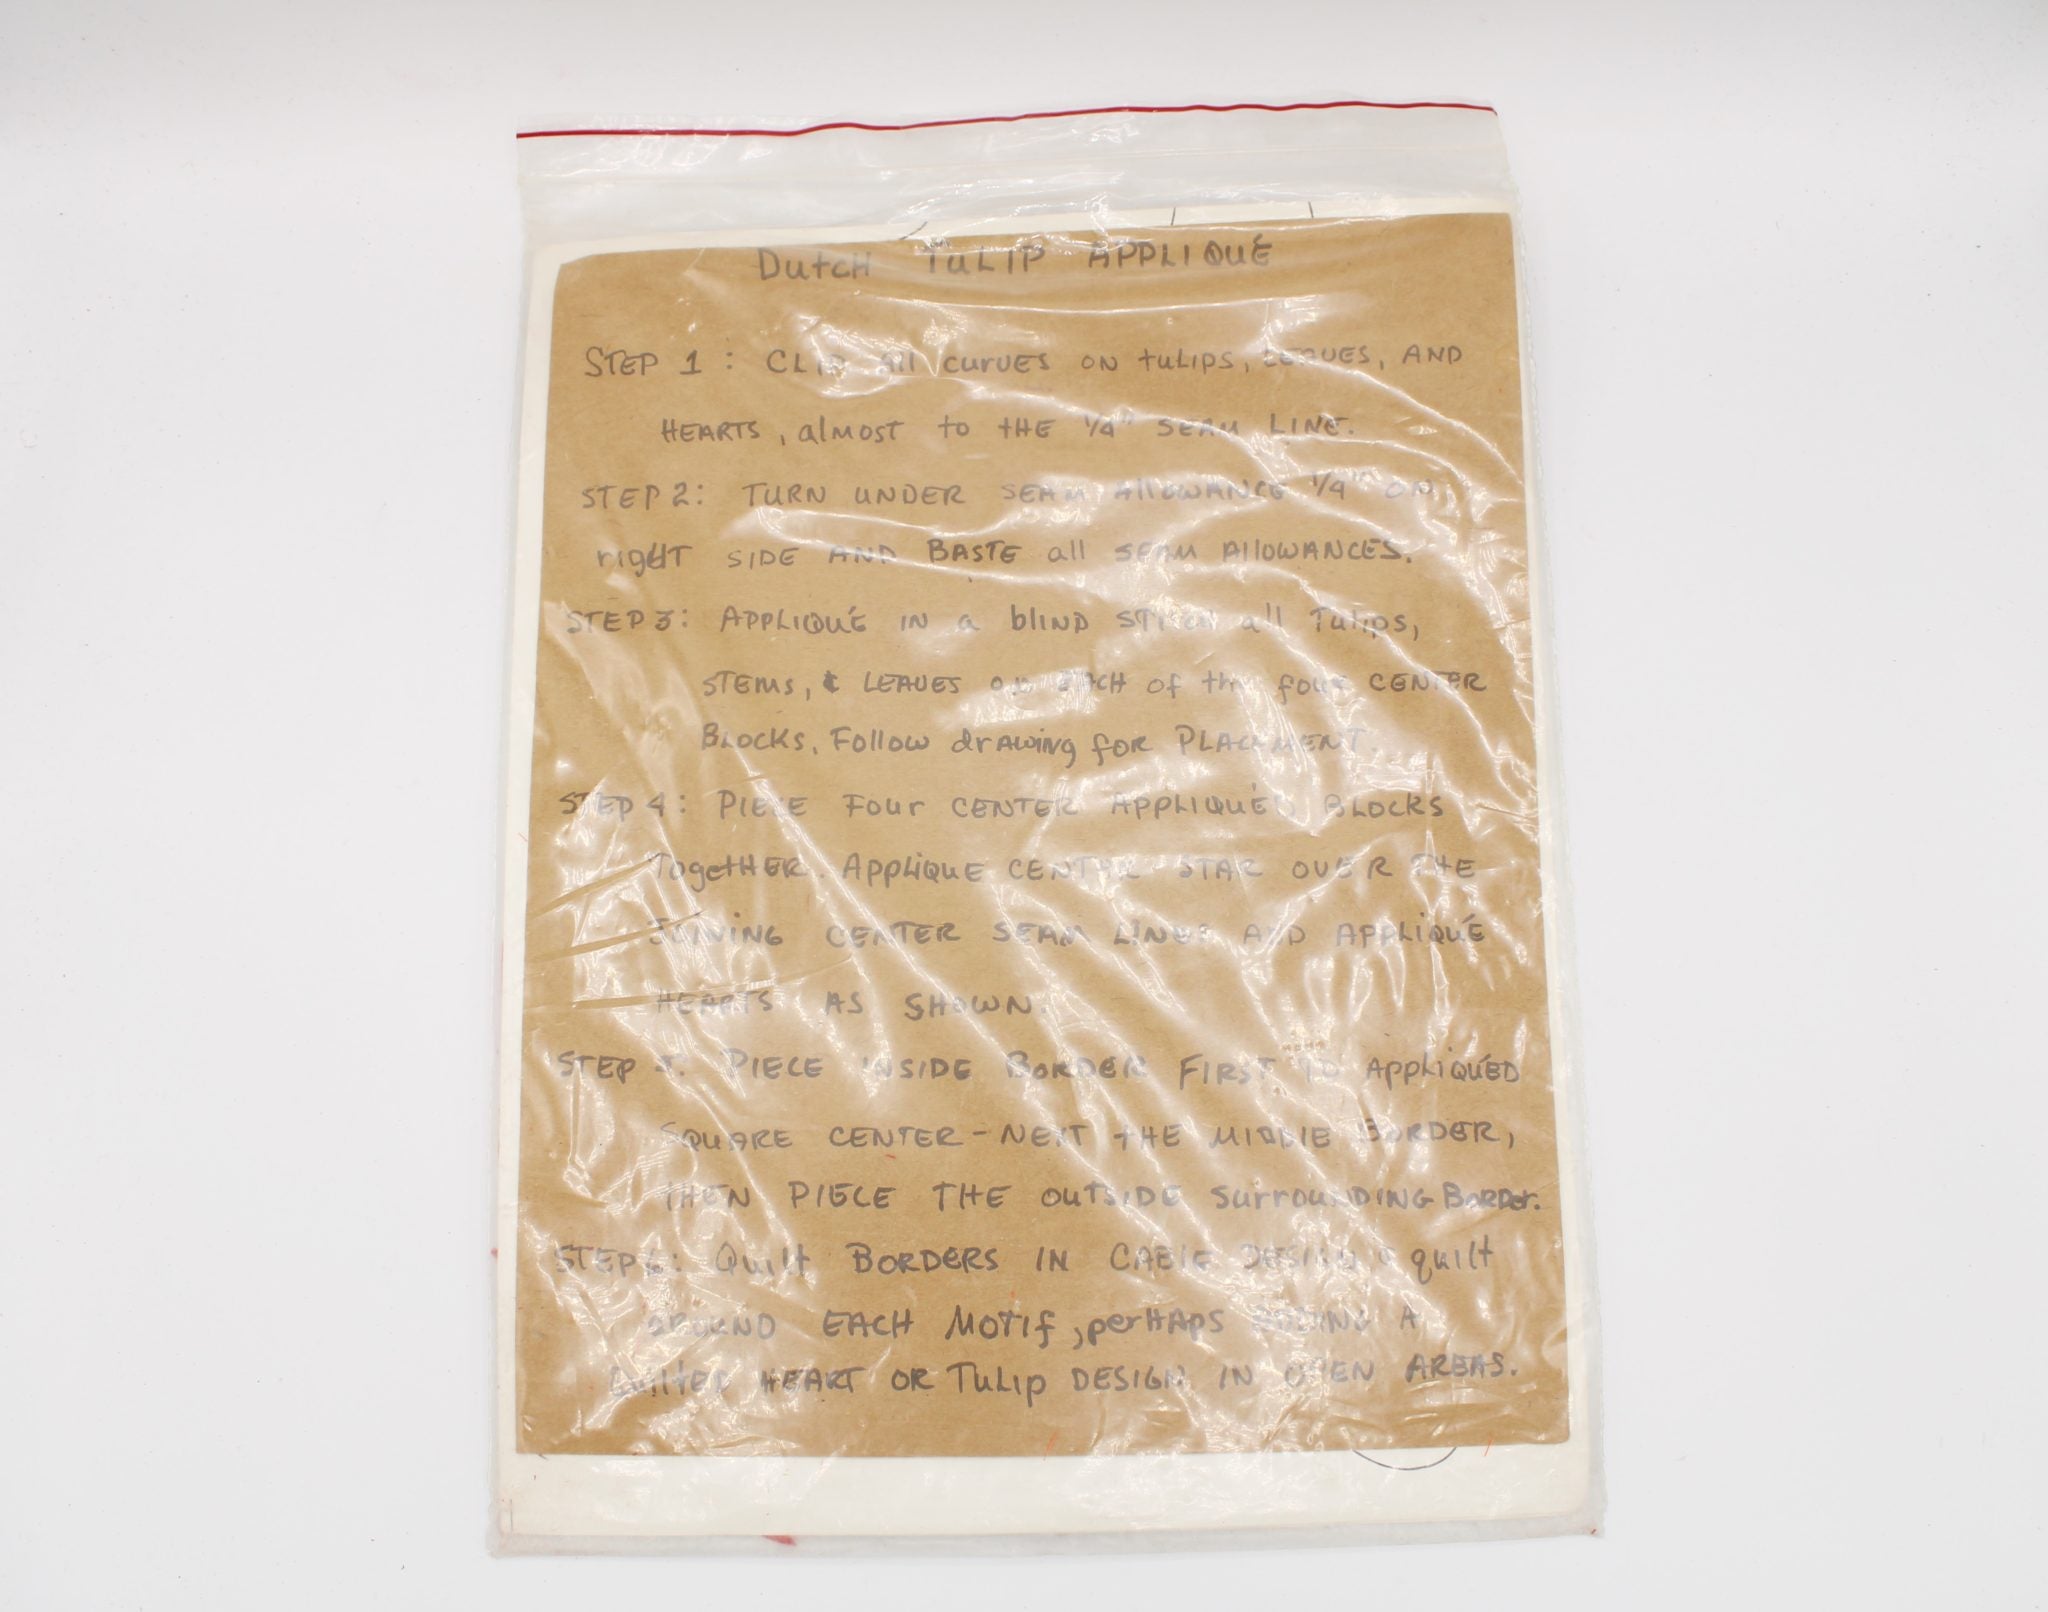 DutcH TuLIP APPLIQUÉ
STEP 1: CLIP All curves ON tuLIPS, LEAVES, AND
HEARTS, almost to tHE 1/4" SEAM LINE.
STEP 2: TURN UNDER SEAM AllOWANCE 1/4" ON
rigHT SIDE AND BASTE all SEAM AllOWANCES.
STEP 3: APPLIQUÉ IN a blIND STITCH all Tulips,
STEMS, & LEAVES ON EACH of the four CENTER
BLOCKS. Follow drAWing for PLACEMENT.
STEP 4: PIECE Four CENTER APPLIQUÉD BLOCKS
TogetHER. APPLiQUE CENTER STAR OVER THE
JOINING CENTER SEAM LINES AND APPLIQUÉ
HEARTS AS SHOWN.
STEP 5: PIECE INSIDE BORDER FIRST TO APPLIQUÉD
SQUARE CENTER - NEXT tHE MIDDlE BORDER,
THEN PIECE THE OutSIDE SurrouNDING BORDer.
STEP 6: Quilt BORDERS IN CABlE DESIGN & quilt
AROUND EACH MOTIf, perHAps ADDING A
QuiltED HEART OR TuLIp DESIGN IN OPEN AREAS.